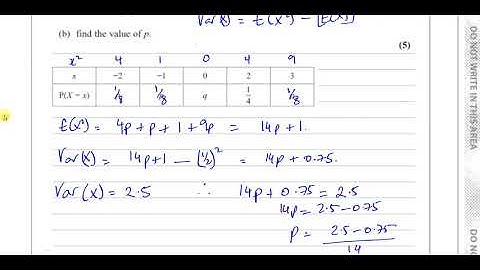 Var(x) = E(x²) - [E(x)]²
(b) find the value of p.
(5)
x² 4 1 0 4 9
x −2 −1 0 2 3
P(X = x) 1/8 1/8 q 1/4 1/8
E(x²) = 4p + p + 1 + 9p = 14p + 1.
Var(x) = 14p + 1 — (1/2)² = 14p + 0.75.
Var(x) = 2.5 ∴ 14p + 0.75 = 2.5
14p = 2.5 - 0.75
p = 2.5 - 0.75
14
DO NOT WRITE IN THIS AREA
DO NO